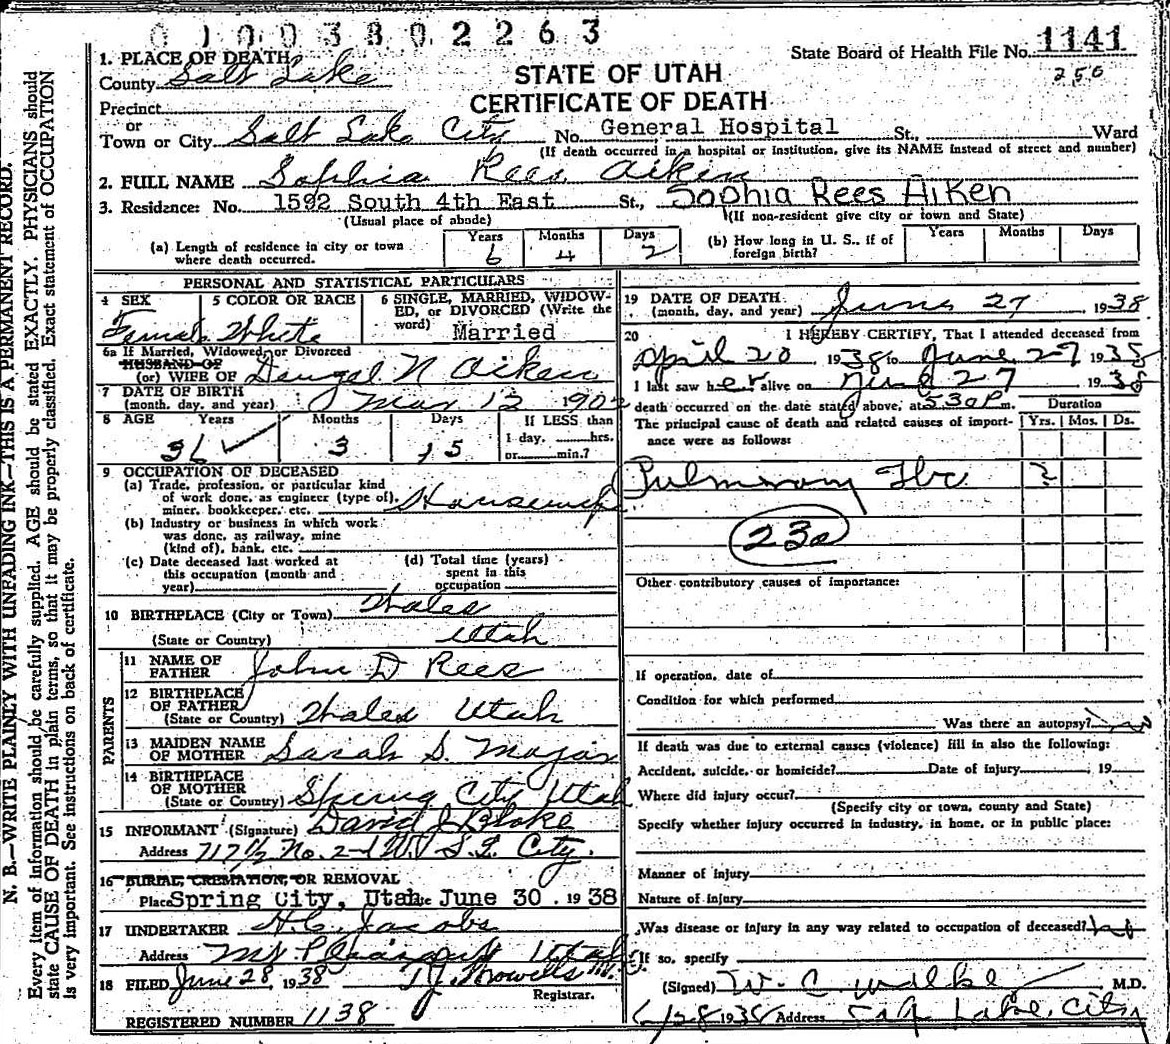 01003802263
State Board of Health File No. 1141
250
1. PLACE OF DEATH
County Salt Lake
STATE OF UTAH
CERTIFICATE OF DEATH
Precinct
or
Town or City Salt Lake City No. General Hospital St., Ward
(If death occurred in a hospital or institution, give its NAME instead of street and number)
2. FULL NAME Sophia Rees Aiken
Sophia Rees Aiken
3. Residence: No. 1592 South 4th East St.,
(Usual place of abode) (If non-resident give city or town and State)
(a) Length of residence in city or town where death occurred. Years 6 Months 4 Days 2
(b) How long in U. S., if of foreign birth? Years Months Days
PERSONAL AND STATISTICAL PARTICULARS
4 SEX Female
5 COLOR OR RACE White
6 SINGLE, MARRIED, WIDOWED, OR DIVORCED (Write the word) Married
6a If Married, Widowed, or Divorced
HUSBAND OF
(or) WIFE OF N Aiken
7 DATE OF BIRTH
(month, day, and year) Mar 12 1902
8 AGE Years 36 Months 3 Days 15
If LESS than
1 day, hrs.
or min.?
9 OCCUPATION OF DECEASED
(a) Trade, profession, or particular kind
of work done, as engineer (type of),
miner, bookkeeper, etc. Housewife
(b) Industry or business in which work
was done, as railway, mine
(kind of), bank, etc.
(c) Date deceased last worked at
this occupation (month and
year)
(d) Total time (years)
spent in this
occupation
10 BIRTHPLACE (City or Town) Wales
(State or Country) Utah
PARENTS
11 NAME OF
FATHER John D Rees
12 BIRTHPLACE
OF FATHER
(State or Country) Wales Utah
13 MAIDEN NAME
OF MOTHER Sarah S.
14 BIRTHPLACE
OF MOTHER
(State or Country) Spring City Utah
15 INFORMANT (Signature) David J Blake
Address 717 1/2 No. 2nd W S. L. City.
16 BURIAL, CREMATION, OR REMOVAL
Place Spring City, Utah Date June 30. 1938
17 UNDERTAKER H.C. Jacobs
Address Mt Pleasant Utah
18 FILED June 28, 1938
Registrar.
REGISTERED NUMBER 1138
19 DATE OF DEATH
(month, day, and year) June 27 1938
20 I HEREBY CERTIFY, That I attended deceased from
April 20 1938 to June 27 1938
I last saw her alive on June 27 1938
death occurred on the date stated above, at 5.30 P. m.
Duration
The principal cause of death and related causes of importance were as follows:
Yrs. Mos. Ds.
Pulmonary Tbc ?
23a
Other contributory causes of importance:
If operation, date of
Condition for which performed
Was there an autopsy? no
If death was due to external causes (violence) fill in also the following:
Accident, suicide, or homicide? Date of injury , 19
Where did injury occur?
(Specify city or town, county and State)
Specify whether injury occurred in industry, in home, or in public place:
Manner of injury
Nature of injury
Was disease or injury in any way related to occupation of deceased?
If so, specify
(Signed) W. C. M.D.
6/28 1938 Address Salt Lake City
N. B.—WRITE PLAINLY WITH UNFADING INK—THIS IS A PERMANENT RECORD.
Every item of information should be carefully supplied. AGE should be stated EXACTLY. PHYSICIANS should
state CAUSE OF DEATH in plain terms, so that it may be properly classified. Exact statement of OCCUPATION
is very important. See instructions on back of certificate.